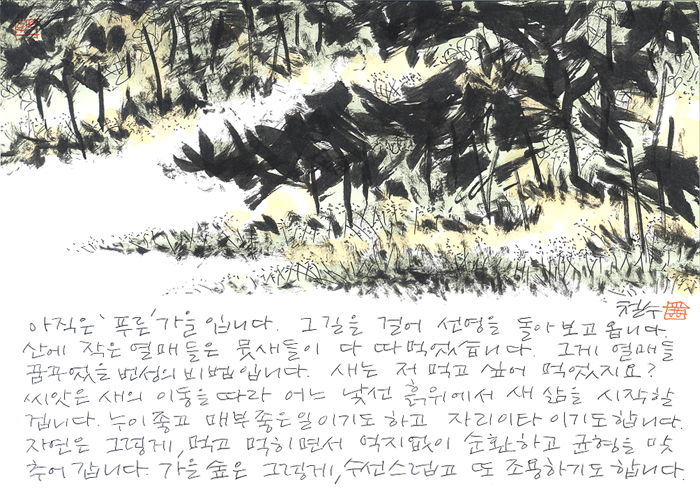 철수
아직은 '푸른' 가을입니다. 그길을 걸어 선영을 돌아보고 옵니다.
산에 작은 열매들은 뭇새들이 다 따먹었습니다. 그게 열매들
꿈꾸었을 번성의 비법입니다. 새는 저 먹고 싶어 먹었지요?
씨앗은 새의 이동을 따라 어느 낯선 흙위에서 새 삶을 시작할
겁니다. 누이좋고 매부좋은일이기도 하고 자리이타이기도합니다.
자연은 그렇게, 먹고 먹히면서 억지없이 순환하고 균형을 맞
추어 갑니다. 가을숲은 그렇게, 수선스럽고 또 조용하기도 합니다.